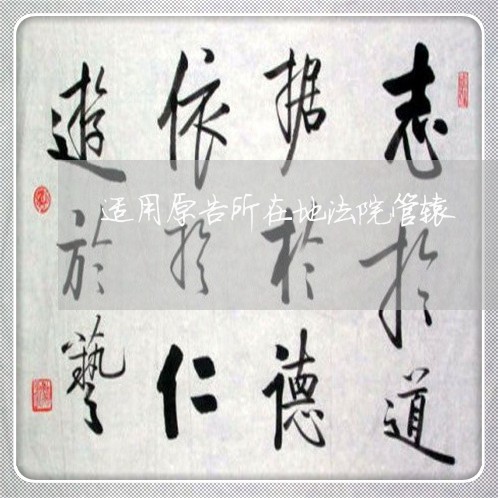 志於道
据於德
依於仁
遊於藝
适用原告所在地法院管辖